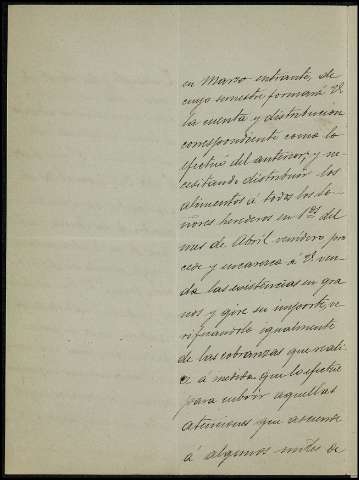 en Marzo entrante, de
cuyo semestre formará V.
la cuenta y distribucion
correspondiente como lo
efectuó del anterior; y ne-
cesitando distribuir los
alimentos á todos los Se-
ñores herederos en 1.os del
mes de Abril venidero pro
cede y encarezco á V. ven-
da las existencias en gra
nos y gire su importe, ve
rificandolo igualmente
de las cobranzas que reali-
ce á medida que lo efectue
para cubrir aquellas
atenciones que asciende
á algunos miles de